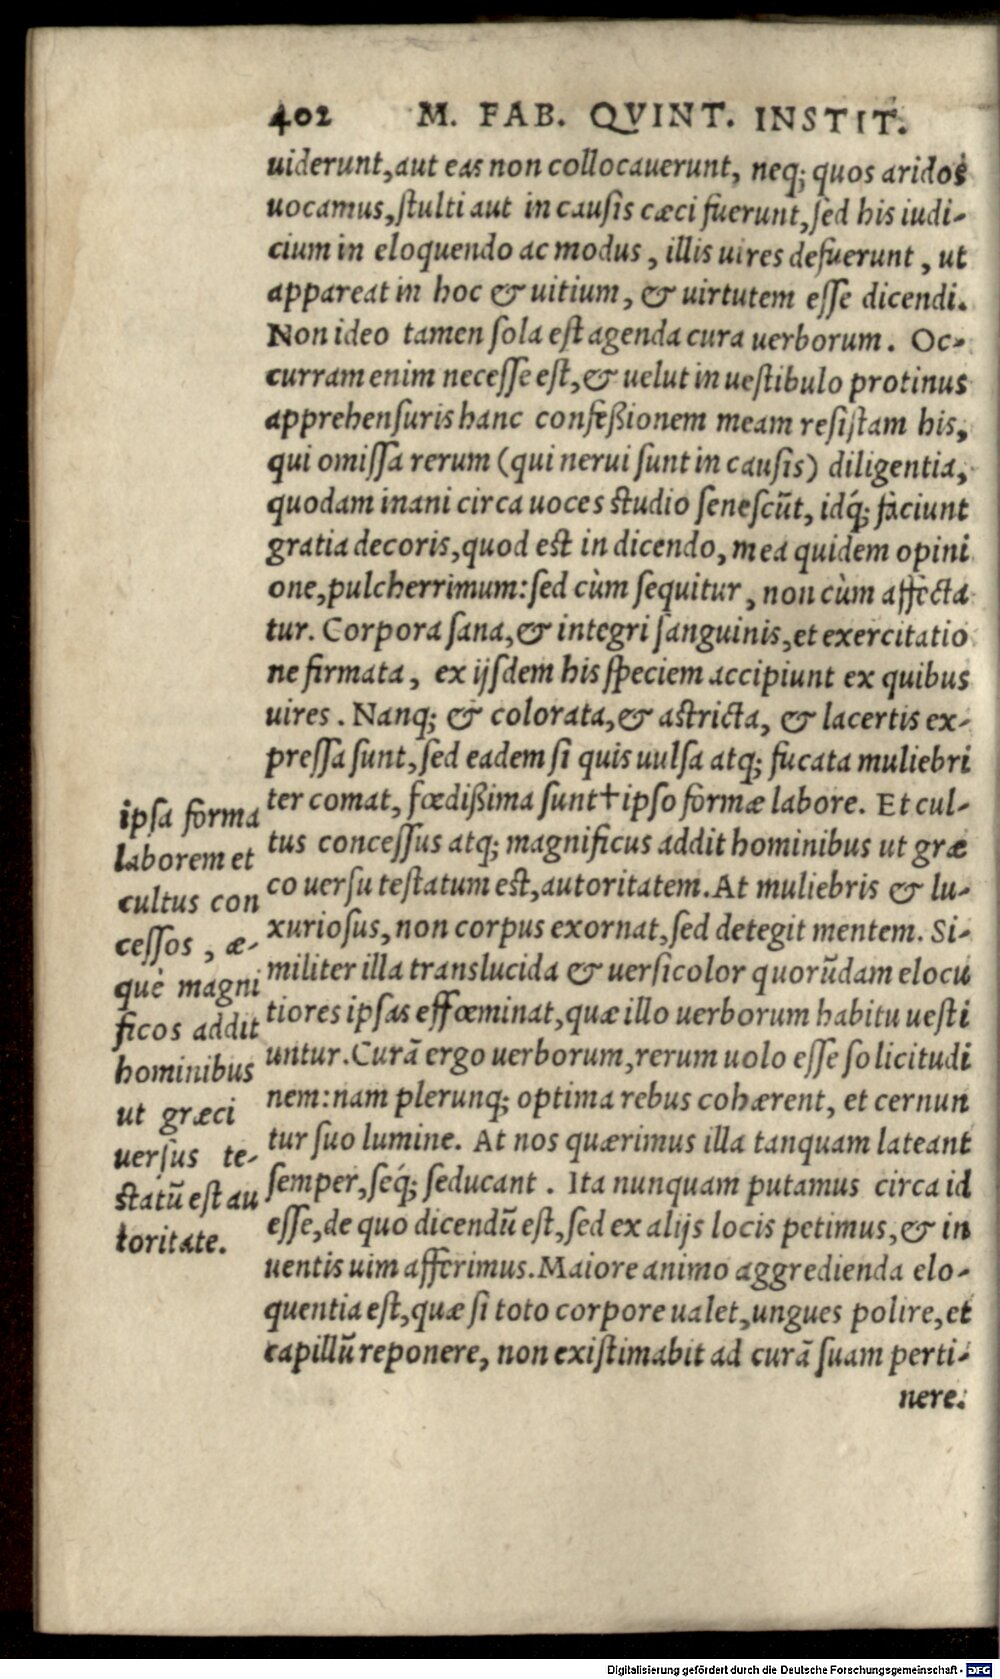 402 M. FAB. QVINT. INSTIT.
uiderunt, aut eas non collocauerunt, neq; quos aridos
uocamus, ſtulti aut in cauſis cæci fuerunt, ſed his iudi-
cium in eloquendo ac modus, illis uires defuerunt, ut
appareat in hoc & uitium, & uirtutem eſſe dicendi.
Non ideo tamen ſola eſt agenda cura uerborum. Oc-
curram enim neceſſe eſt, & uelut in ueſtibulo protinus
apprehenſuris hanc confeßionem meam reſiſtam his,
qui omiſſa rerum (qui nerui ſunt in cauſis) diligentia,
quodam inani circa uoces ſtudio ſeneſcũt, idq́; faciunt
gratia decoris, quod eſt in dicendo, mea quidem opini
one, pulcherrimum: ſed cùm ſequitur, non cùm affecta
tur. Corpora ſana, & integri ſanguinis, et exercitatio
ne firmata, ex ijſdem his ſpeciem accipiunt ex quibus
uires. Nanq; & colorata, & aſtricta, & lacertis ex-
preſſa ſunt, ſed eadem ſi quis uulſa atq; fucata muliebri
ter comat, fœdißima ſunt† ipſo formæ labore. Et cul-
tus conceſſus atq; magnificus addit hominibus ut græ
co uerſu teſtatum eſt, autoritatem. At muliebris & lu-
xurioſus, non corpus exornat, ſed detegit mentem. Si-
militer illa translucida & uerſicolor quorũdam elocu
tiores ipſas effœminat, quæ illo uerborum habitu ueſti
untur. Curã ergo uerborum, rerum uolo eſſe ſolicitudi
nem: nam plerunq; optima rebus cohærent, et cernun
tur ſuo lumine. At nos quærimus illa tanquam lateant
ſemper, ſéq́; ſeducant. Ita nunquam putamus circa id
eſſe, de quo dicendũ eſt, ſed ex alijs locis petimus, & in
uentis uim afferimus. Maiore animo aggredienda elo-
quentia eſt, quæ ſi toto corpore ualet, ungues polire, et
capillũ reponere, non exiſtimabit ad curã ſuam perti-
nere.
ipſa forma
laborem et
cultus con
ceſſos, æ-
què magni
ficos addit
hominibus
ut græci
uerſus te-
ſtatũ eſt au
toritate.
Digitalisierung gefördert durch die Deutsche Forschungsgemeinschaft - DFG